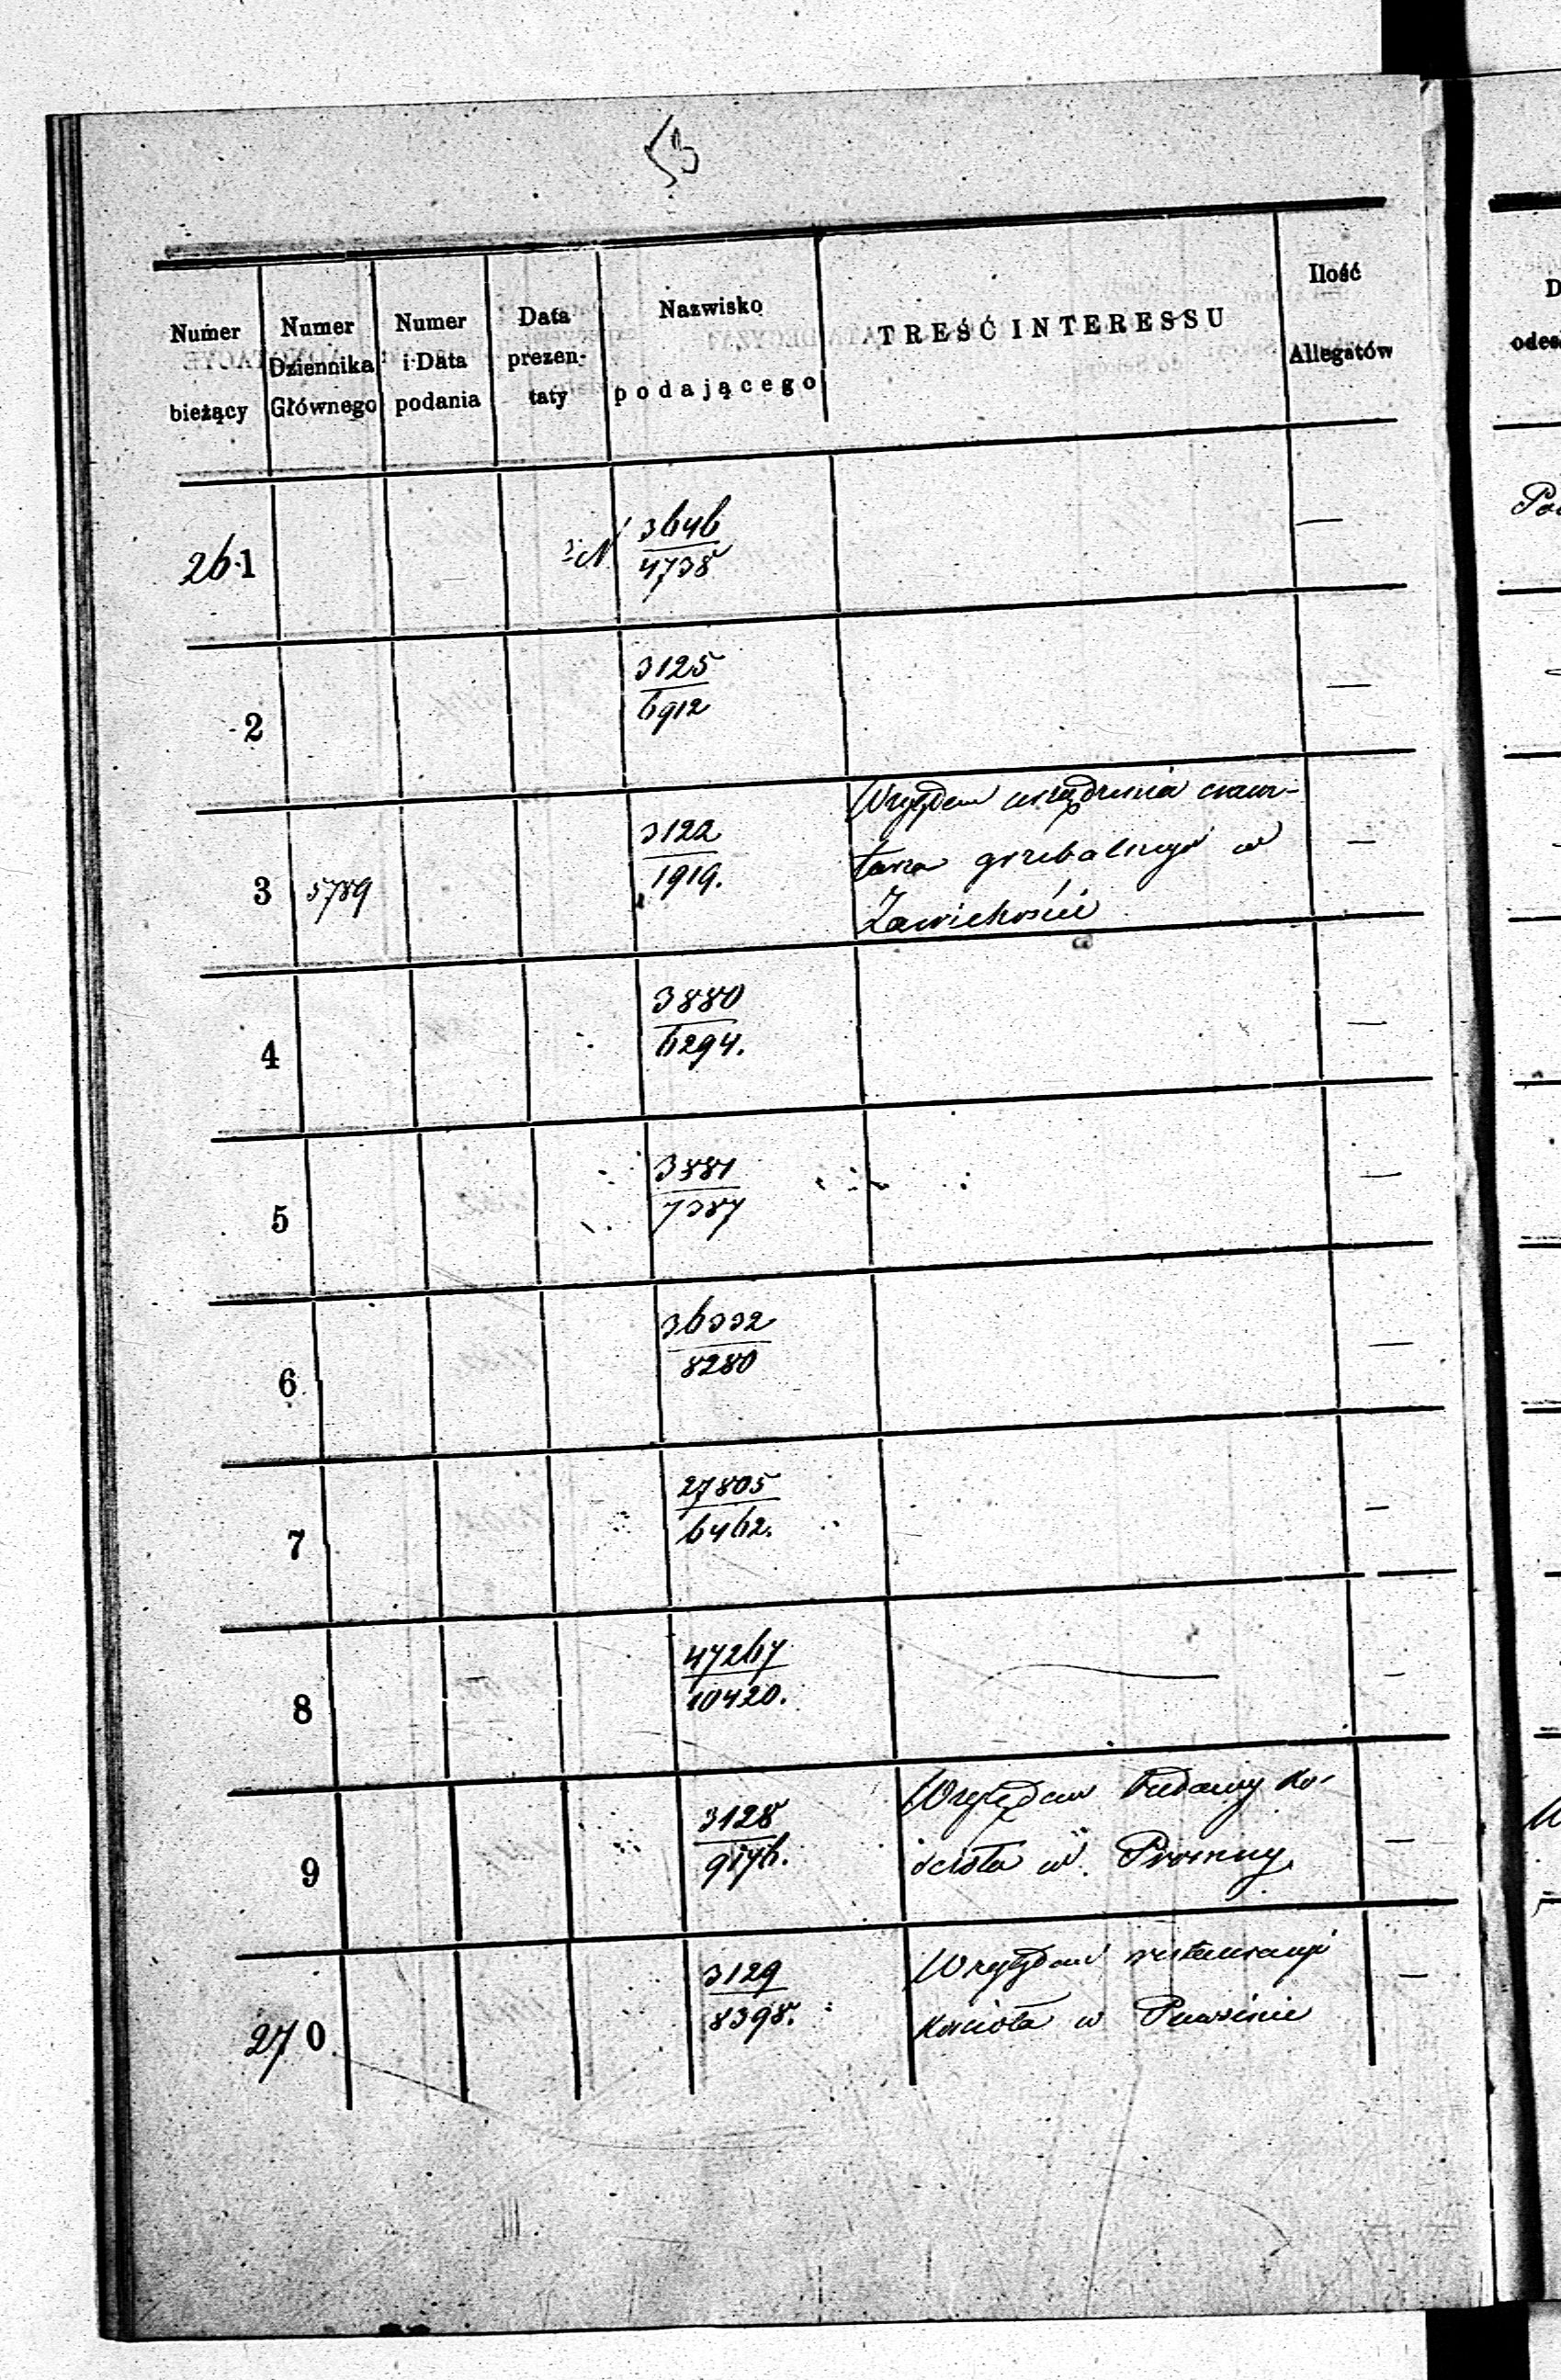 53
Numer bieżący
Numer Dziennika Głównego
Numer i Data podania
Data prezen- taty
Nazwisko podającego
TREŚĆ INTERESSU
Ilość Allegatów
261
3646
4738
2
3125
6912
3
5789
3122
1919.
Względem urządzenia cmen-
tarza grzebalnego w
Zawichoście
4
3880
6294.
5
3881
7387
6
36332
8280
7
27805
6462.
8
47267
10420.
9
3128
9176.
Względem budowy ko-
ścioła w Promny
270
3129
8398.
Względem restauracyi
kościoła w